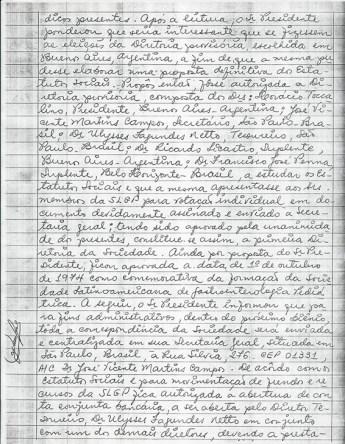 dicos presentes. Após a leitura, o Sr. Presidente
ponderou que seria interessante que se fizessem
as eleições da Diretoria provisória, escolhida em
Buenos Aires, Argentina, a fim de que a mesma pu
desse elaborar uma proposta definitiva do Esta-
tutos Sociais. Propos então, fosse autorizada a Di
retoria provisória, composta dos Drs: Horácio Tocca
lino, Presidente, Buenos Aires - Argentina; José Vi-
cente Martins Campos, Secretário, São Paulo - Bra-
sil; Dr. Ulysses Fagundes Netto, Tesoureiro, São
Paulo. Brasil; Dr. Ricardo Licastro Suplente,
Buenos Aires - Argentina; Dr. Francisco José Penna
Suplente, Belo Horizonte - Brasil, a estudar os Es-
tatutos Sociais e que a mesma apresentasse aos Srs.
membros da SLGP para votação individual, em do-
cumento devidamente assinado e enviado a Secre-
taria geral; tendo sido aprovado pela unanimida
de dos presentes, constitue-se assim, a primeira Di
retoria da Sociedade. Ainda por proposta do Sr. Pre-
sidente, ficou aprovada a data de 1º de outubro
de 1974 como comemorativa da formação da Socie
dade Latinoamericana de Gastroenterologia Pediá-
trica. A seguir, o Sr. Presidente informou que pa
ra fins administrativos, dentro do próximo biênio,
toda a correspondência da Sociedade será enviada
e centralizada em sua Secretaria Geral, situada em
São Paulo, Brasil, à Rua Silvia, 276. CEP 01331,
A/C Dr. José Vicente Martins Campos. De acordo com os
estatutos Sociais e para movimentação de fundos e re
cursos da SLGP fica autorizada a abertura de con
ta conjunta bancária, a ser aberta pelo Diretor Te-
soureiro, Dr. Ulysses Fagundes Netto em conjunto
com um dos demais diretores, devendo a assina-